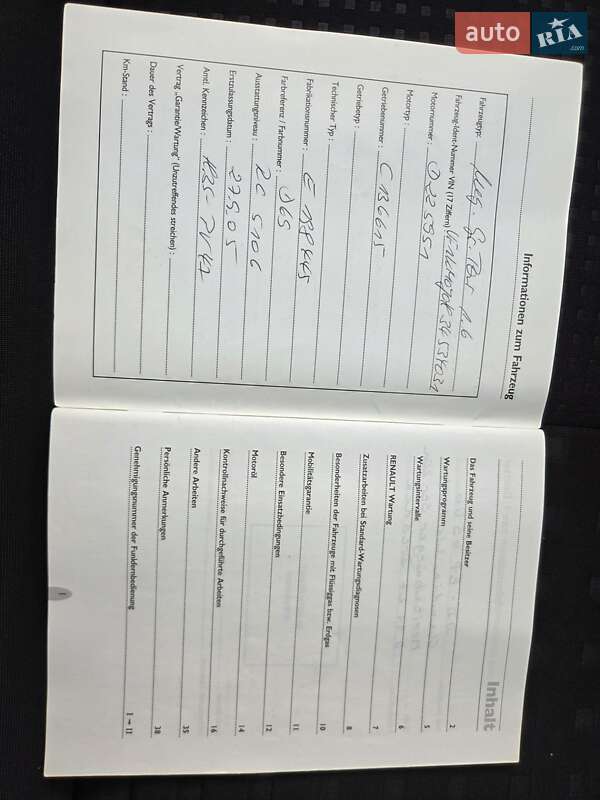 auto RIA .com
Informationen zum Fahrzeug
Fahrzeugtyp: Meg. Gr. Tour 1.6
Fahrzeug-Ident-Nummer VIN (17 Ziffern)
Motornummer : D225951
Motortyp :
Getriebenummer : C136615
Getriebetyp :
Technischer Typ :
Fabrikationsnummer : E 198445
Farbreferenz / Farbnummer : D65
Ausstattungsniveau : 2C 5106
Erstzulassungsdatum : 27.5.05
Amtl. Kennzeichen :
Vertrag „Garantie/Wartung" (Unzutreffendes streichen) :
Dauer des Vertrags :
Km-Stand :
Inhalt
Das Fahrzeug und seine Besitzer 2
Wartungsprogramm 5
Wartungsintervalle 6
RENAULT Wartung 7
Zusatzarbeiten bei Standard-Wartungsdiagnosen 8
Besonderheiten der Fahrzeuge mit Flüssiggas bzw. Erdgas 10
Mobilitätsgarantie 11
Besondere Einsatzbedingungen 12
Motoröl 14
Kontrollnachweise für durchgeführte Arbeiten 16
Andere Arbeiten 35
Persönliche Anmerkungen 38
Genehmigungsnummer der Funkfernbedienung I ➞ II
1